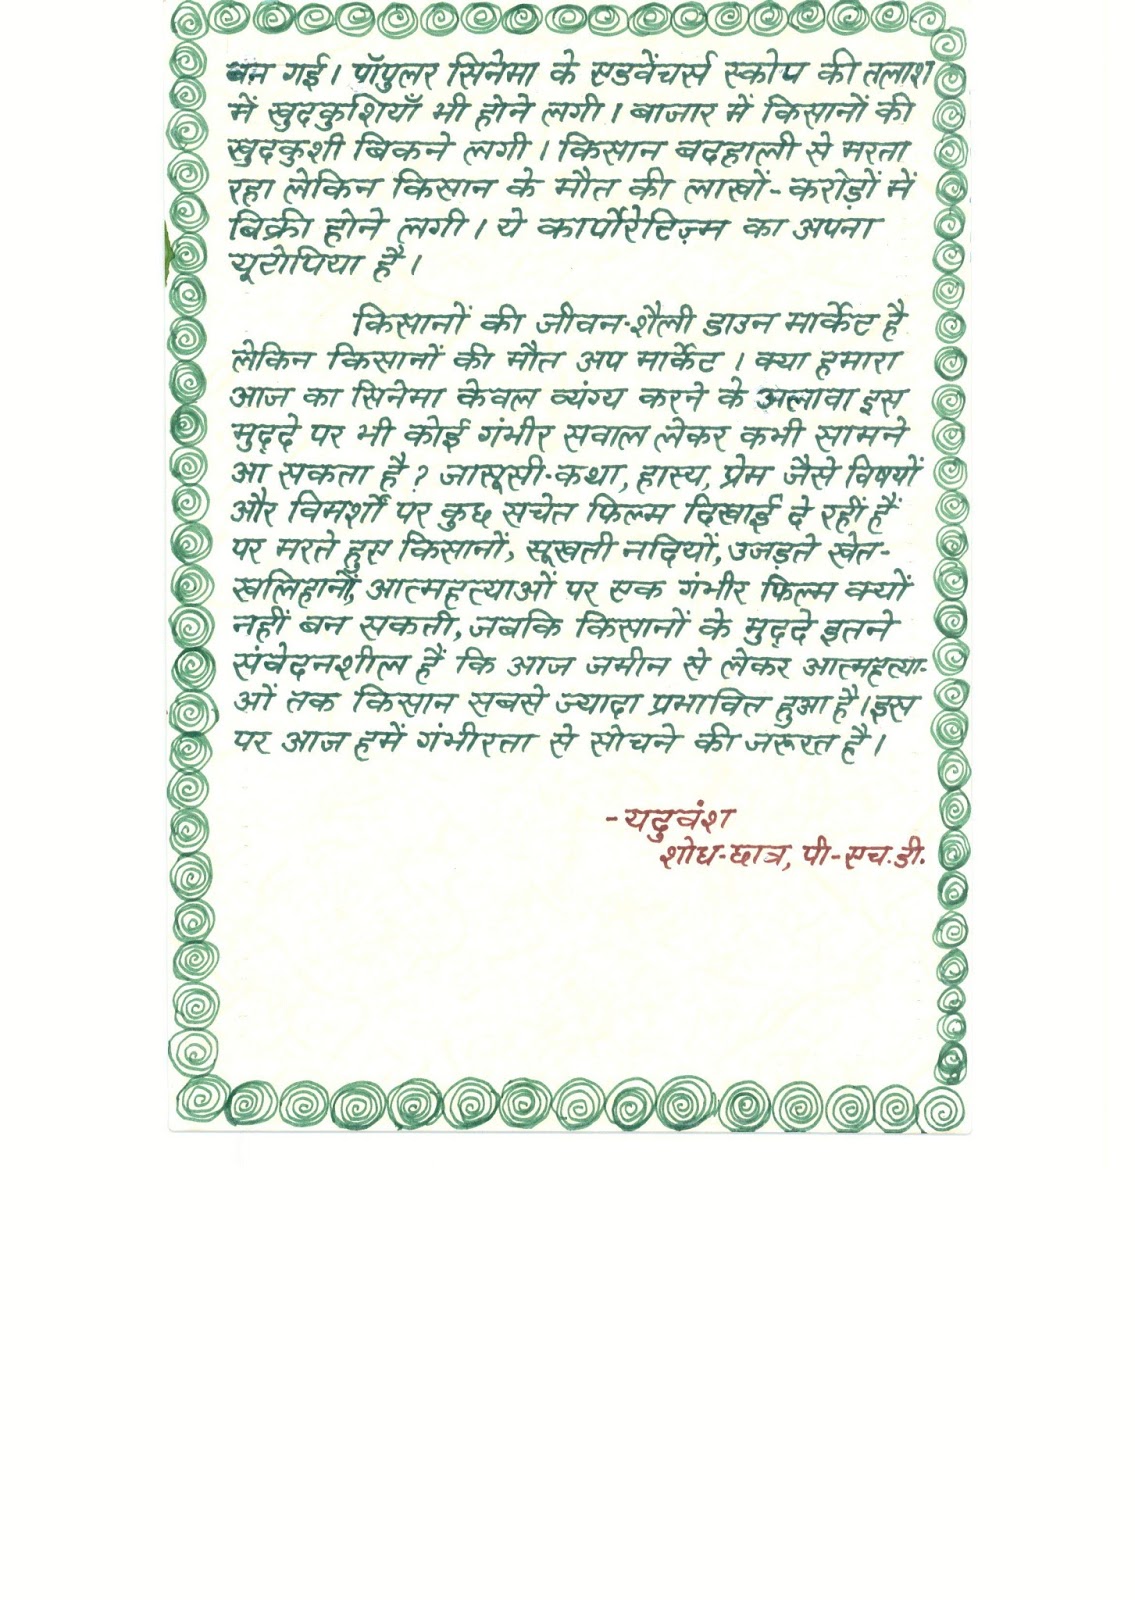 बन गई। पॉपुलर सिनेमा के एडवेंचर्स स्कोप की तलाश
में खुदकुशियाँ भी होने लगी। बाजार में किसानों की
खुदकुशी बिकने लगी। किसान बदहाली से मरता
रहा लेकिन किसान के मौत की लाखों-करोड़ों में
बिक्री होने लगी। ये कार्पोरेटिज़्म का अपना
यूटोपिया है।
किसानों की जीवन-शैली डाउन मार्केट है
लेकिन किसानों की मौत अप मार्केट। क्या हमारा
आज का सिनेमा केवल व्यंग्य करने के अलावा इस
मुद्दे पर भी कोई गंभीर सवाल लेकर कभी सामने
आ सकता है? जासूसी-कथा, हास्य, प्रेम जैसे विषयों
और विमर्शों पर कुछ सचेत फिल्म दिखाई दे रहीं हैं
पर मरते हुए किसानों, सूखती नदियों, उजड़ते खेत-
खलिहानों, आत्महत्याओं पर एक गंभीर फिल्म क्यों
नहीं बन सकती, जबकि किसानों के मुद्दे इतने
संवेदनशील हैं कि आज जमीन से लेकर आत्महत्या-
ओं तक किसान सबसे ज्यादा प्रभावित हुआ है। इस
पर आज हमें गंभीरता से सोचने की जरूरत है।
-यदुवंश
शोध-छात्र, पी-एच.डी.